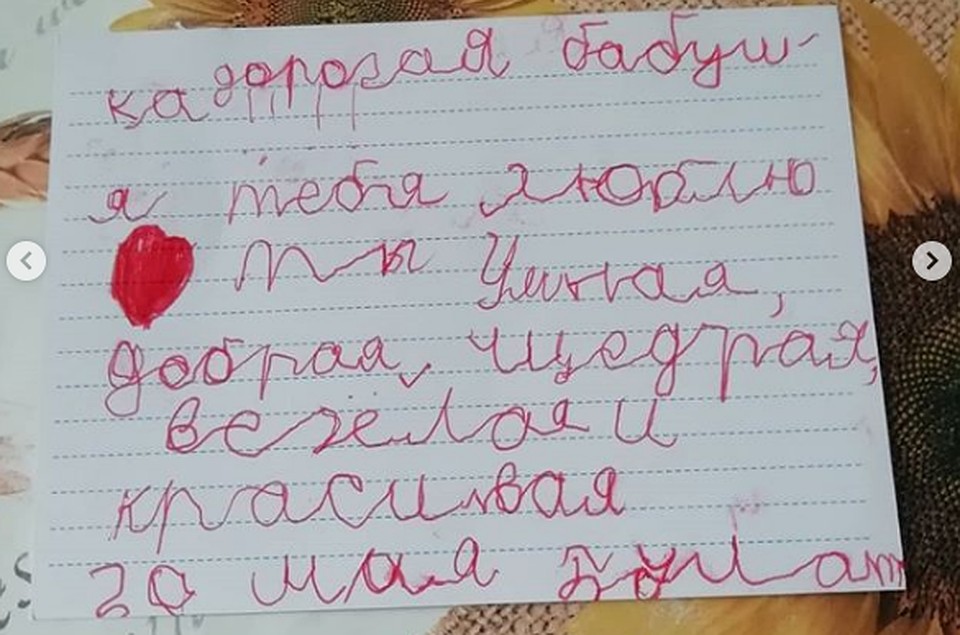 дорогая бабуш-
ка
я тебя люблю
ты умная,
добрая, щедрая,
везёлая и
красивая
20 мая Булат